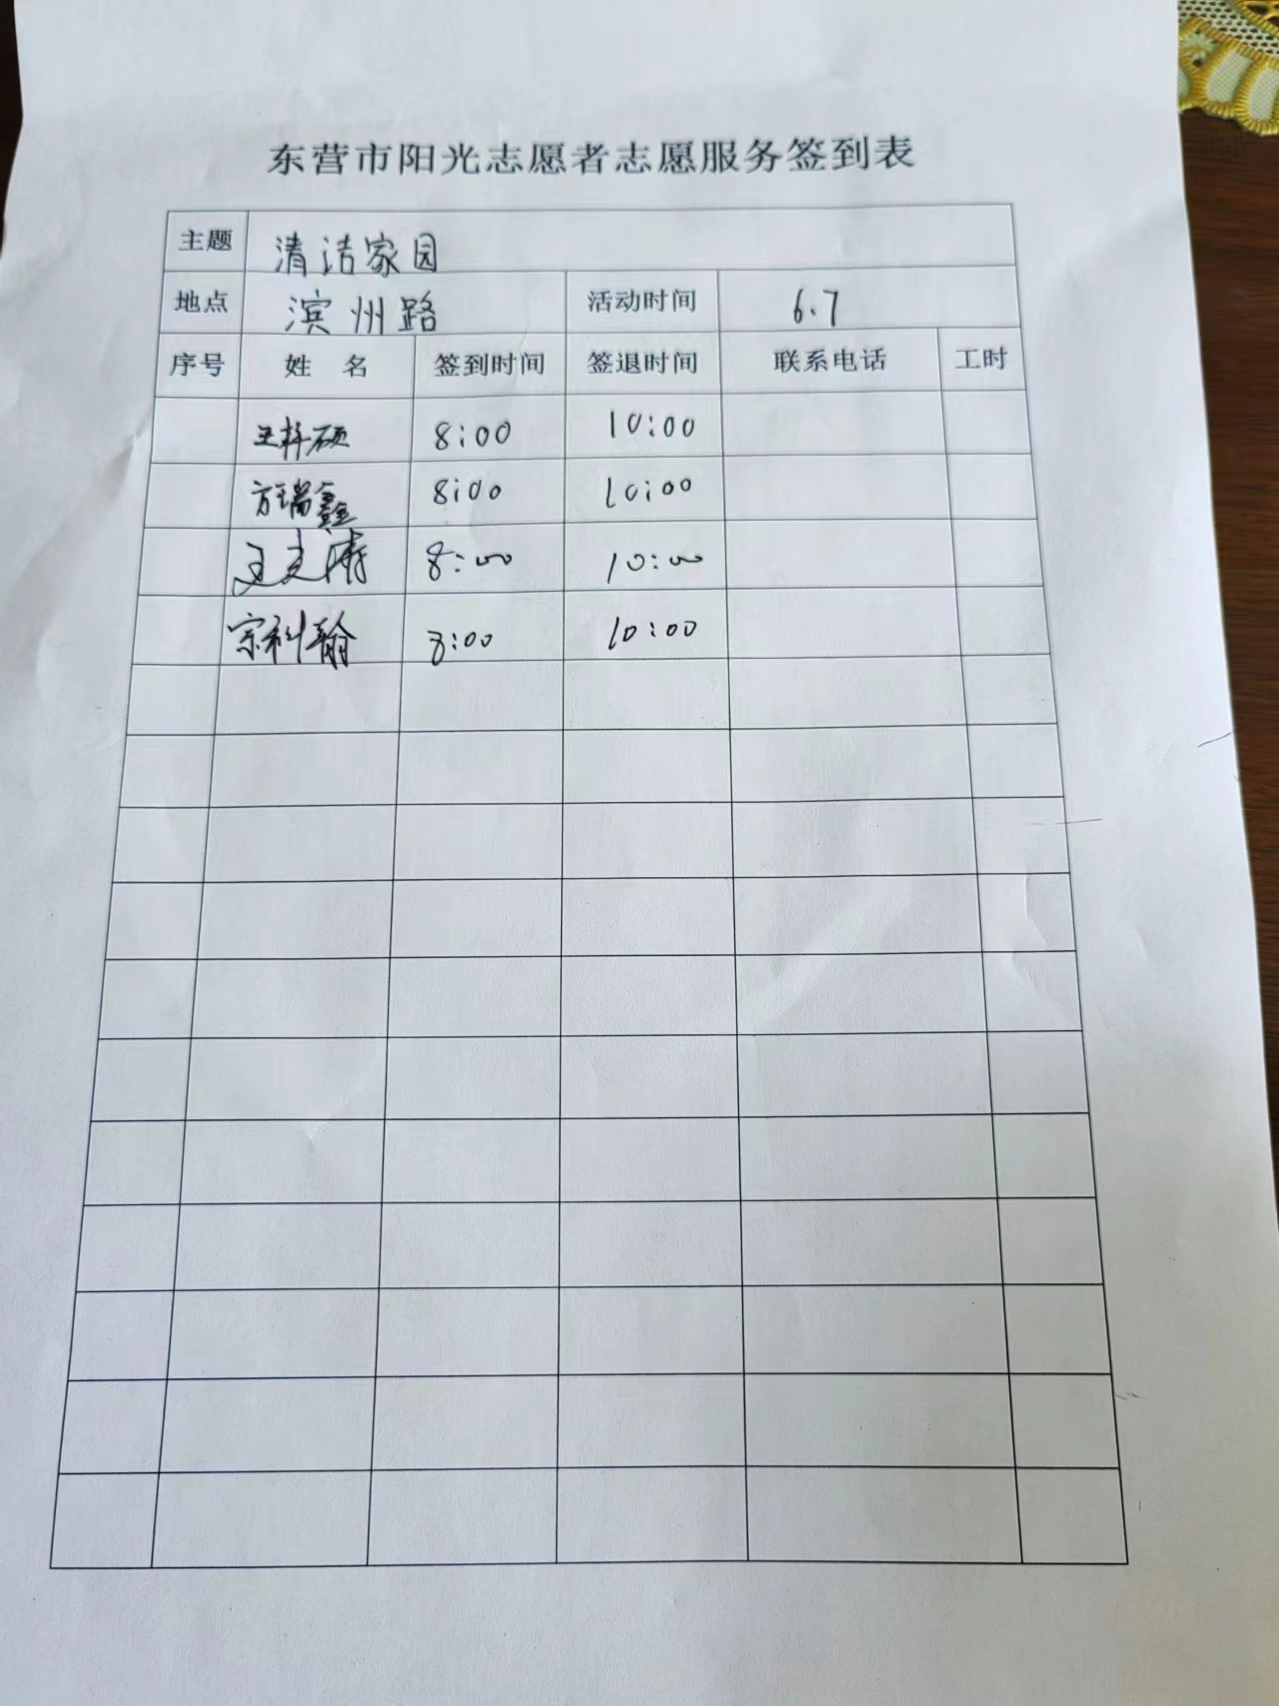 东营市阳光志愿者志愿服务签到表
主题 清洁家园
地点 滨州路 活动时间 6.7
序号 姓 名 签到时间 签退时间 联系电话 工时
王梓硕 8:00 10:00
方瑞鑫 8:00 10:00
8:00 10:00
宗科翰 8:00 10:00